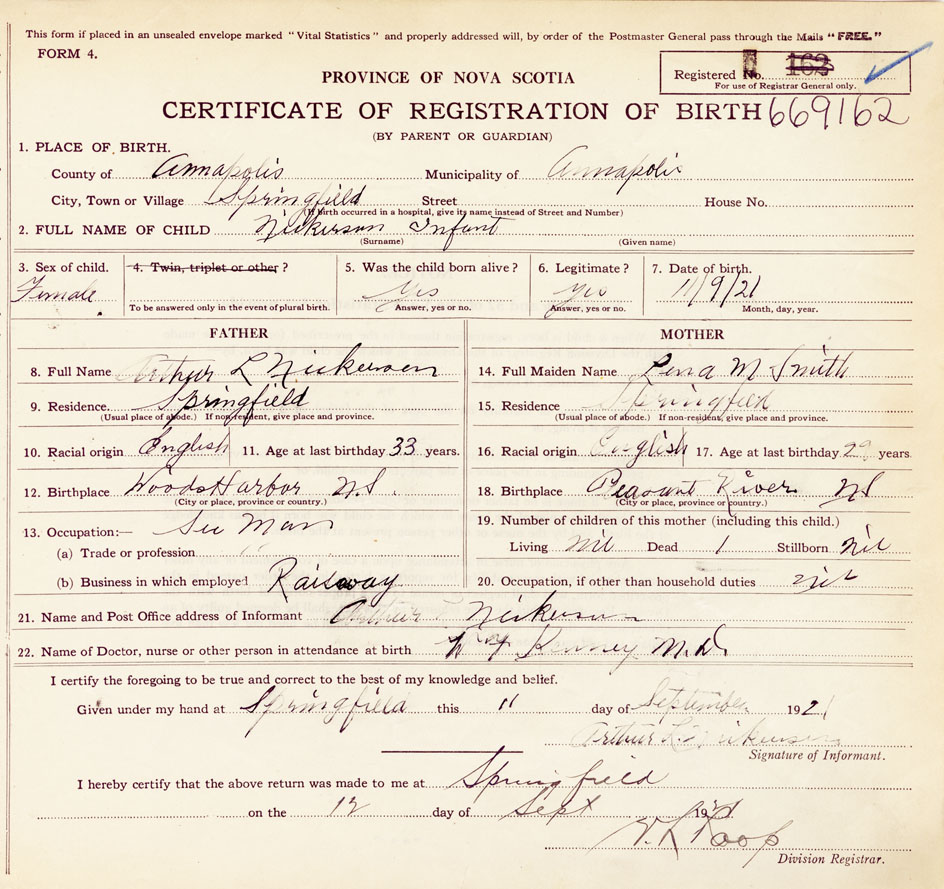 This form if placed in an unsealed envelope marked "Vital Statistics" and properly addressed will, by order of the Postmaster General pass through the Mails "FREE."
FORM 4.
Registered No. 162
For use of Registrar General only.
PROVINCE OF NOVA SCOTIA
CERTIFICATE OF REGISTRATION OF BIRTH 669162
(BY PARENT OR GUARDIAN)
1. PLACE OF BIRTH.
County of Annapolis Municipality of Annapolis
City, Town or Village Springfield Street House No.
(If birth occurred in a hospital, give its name instead of Street and Number)
2. FULL NAME OF CHILD Nickerson Infant
(Surname) (Given name)
3. Sex of child. 4. Twin, triplet or other? 5. Was the child born alive? 6. Legitimate? 7. Date of birth.
Female yes yes 11/9/21
To be answered only in the event of plural birth. Answer, yes or no. Answer, yes or no. Month, day, year.
FATHER MOTHER
8. Full Name Arthur L Nickerson 14. Full Maiden Name Lena M Smith
9. Residence. Springfield 15. Residence Springfield
(Usual place of abode.) If non-resident, give place and province. (Usual place of abode.) If non-resident, give place and province.
10. Racial origin English 11. Age at last birthday 33 years. 16. Racial origin English 17. Age at last birthday 29 years.
12. Birthplace Woods Harbor N.S. 18. Birthplace Pleasant River NS
(City or place, province or country.) (City or place, province or country.)
13. Occupation:— Sec Man 19. Number of children of this mother (including this child.)
(a) Trade or profession Living nil Dead 1 Stillborn nil
(b) Business in which employed Railway 20. Occupation, if other than household duties nil
21. Name and Post Office address of Informant Arthur L Nickerson
22. Name of Doctor, nurse or other person in attendance at birth Kenney M.D.
I certify the foregoing to be true and correct to the best of my knowledge and belief.
Given under my hand at Springfield this 11 day of September 1921
Arthur L. Nickerson
Signature of Informant.
I hereby certify that the above return was made to me at Springfield
on the 12 day of Sept 1921
Roop
Division Registrar.